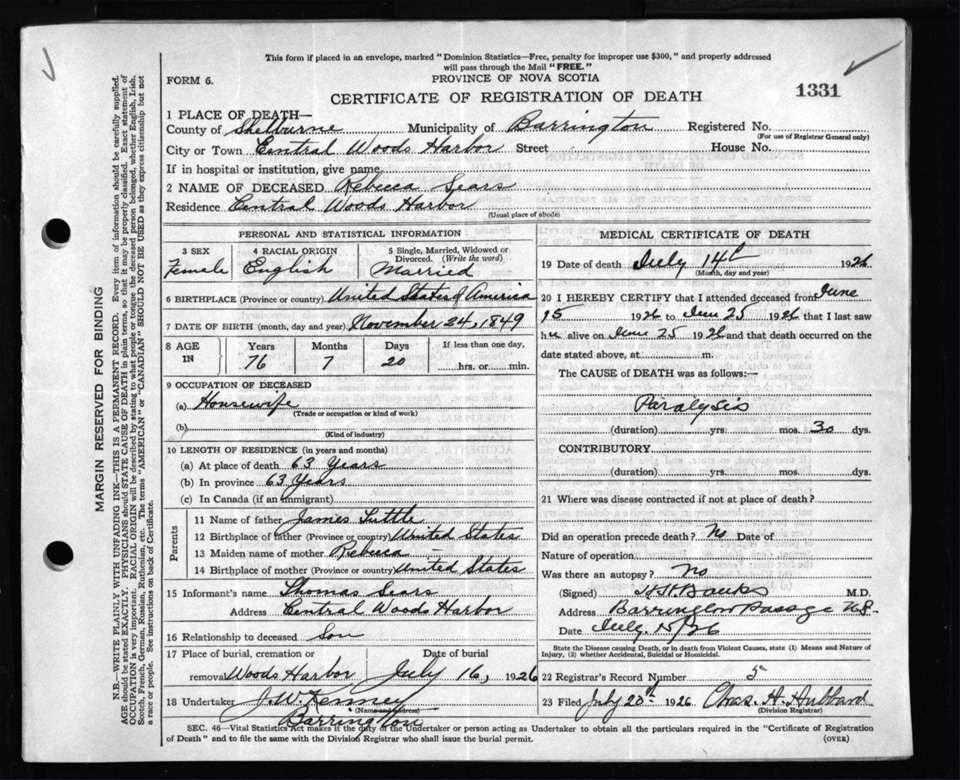 This form if placed in an envelope, marked "Dominion Statistics—Free, penalty for improper use $300," and properly addressed
will pass through the Mail "FREE."
FORM 6.
PROVINCE OF NOVA SCOTIA
CERTIFICATE OF REGISTRATION OF DEATH
1331
1 PLACE OF DEATH—
County of Shelburne Municipality of Barrington Registered No.
(For use of Registrar General only)
City or Town Central Woods Harbor Street House No.
If in hospital or institution, give name
2 NAME OF DECEASED Rebecca Sears
Residence Central Woods Harbor
(Usual place of abode)
PERSONAL AND STATISTICAL INFORMATION
3 SEX 4 RACIAL ORIGIN 5 Single, Married, Widowed or
Divorced. (Write the word)
Female English Married
6 BIRTHPLACE (Province or country) United States of America
7 DATE OF BIRTH (month, day and year) November 24, 1849
8 AGE IN Years Months Days If less than one day,
76 7 20 hrs. or min.
9 OCCUPATION OF DECEASED
(a) Housewife
(Trade or occupation or kind of work)
(b)
(Kind of industry)
10 LENGTH OF RESIDENCE (in years and months)
(a) At place of death 63 Years
(b) In province 63 Years
(c) In Canada (if an immigrant)
Parents
11 Name of father James Tuttle
12 Birthplace of father (Province or country) United States
13 Maiden name of mother Rebecca
14 Birthplace of mother (Province or country) United States
15 Informant's name Thomas Sears
Address Central Woods Harbor
16 Relationship to deceased Son
17 Place of burial, cremation or Date of burial
removal Woods Harbor July 16, 1926
18 Undertaker J. W. Kenney
(Name and address)
Barrington
MEDICAL CERTIFICATE OF DEATH
19 Date of death July 14th 1926
(Month, day and year)
20 I HEREBY CERTIFY that I attended deceased from June
15 1926 to June 25 1926 that I last saw
her alive on June 25 1926 and that death occurred on the
date stated above, at m.
The CAUSE of DEATH was as follows:—
Paralysis
(duration) yrs. mos. 30 dys.
CONTRIBUTORY
(duration) yrs. mos. dys.
21 Where was disease contracted if not at place of death?
Did an operation precede death? No Date of
Nature of operation
Was there an autopsy? No
(Signed) Banks M.D.
Address Barrington Passage N.S.
Date July 15/26
State the Disease causing Death, or in death from Violent Causes, state (1) Means and Nature of
Injury, (2) whether Accidental, Suicidal or Homicidal.
22 Registrar's Record Number 5
23 Filed July 20th 1926 Chas. H. Hubbard
(Division Registrar)
SEC. 46—Vital Statistics Act makes it the duty of the Undertaker or person acting as Undertaker to obtain all the particulars required in the "Certificate of Registration
of Death" and to file the same with the Division Registrar who shall issue the burial permit. (OVER)
MARGIN RESERVED FOR BINDING
N.B.—WRITE PLAINLY WITH UNFADING INK—THIS IS A PERMANENT RECORD. Every item of information should be carefully supplied.
AGE should be stated EXACTLY. PHYSICIANS should STATE CAUSE OF DEATH in plain terms, so that it may be properly classified. Exact statement of
OCCUPATION is very important. RACIAL ORIGIN will be described by stating to what people or tongue the deceased person belonged, whether English, Irish,
Scotch, French, German, Russian, Ruthenian, etc. The terms "AMERICAN" or "CANADIAN" SHOULD NOT BE USED as they express citizenship but not
a race or people. See instructions on back of Certificate.